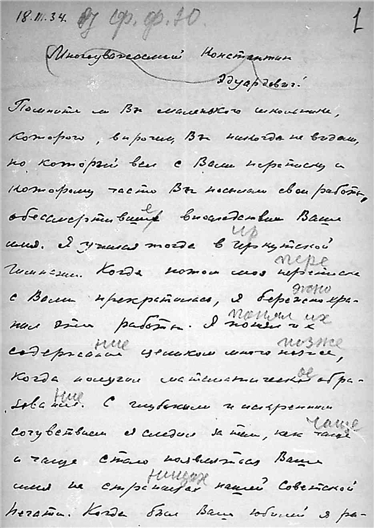 18.III.34. Ф.Ф.Ю. 1
Многоуважаемый Константин
Эдуардович!
Помните ли Вы маленького школьника,
которого, впрочем, Вы никогда не видали,
но который вел с Вами переписку и
которому часто Вы посылали свои работы,
обессмертившие впоследствии Ваше
имя. Я учился тогда в Иркутской
гимназии. Когда потом моя переписка
с Вами прекратилась, я бережно хра-
нил эти работы. Я понял их
содержание целиком много позже,
когда получил математическое обра-
зование. С глубоким и искренним
сочувствием я следил за тем, как чаще
и чаще стало появляться Ваше
имя на страницах нашей Советской
печати. Когда был Ваш юбилей я ра-